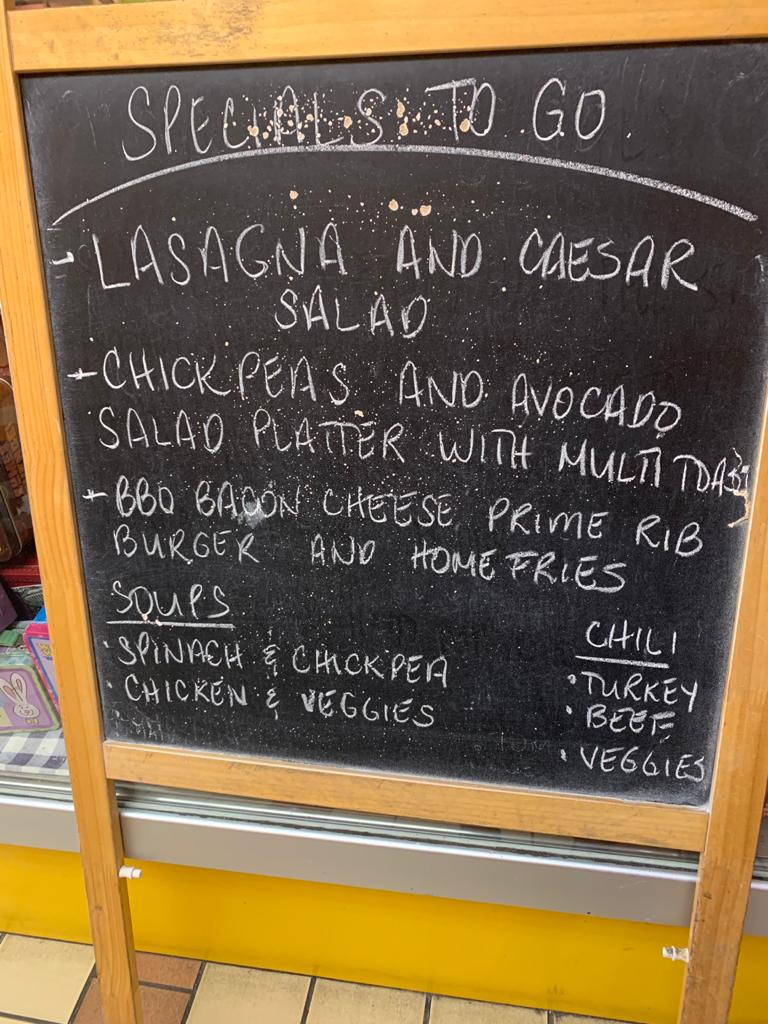 SPECIALS TO GO.
- LASAGNA AND CAESAR
SALAD
- CHICKPEAS AND AVOCADO
SALAD PLATTER WITH MULTI TOAST
- BBQ BACON CHEESE PRIME RIB
BURGER AND HOMEFRIES
SOUPS
• SPINACH & CHICKPEA
• CHICKEN & VEGGIES
CHILI
• TURKEY
• BEEF
• VEGGIES